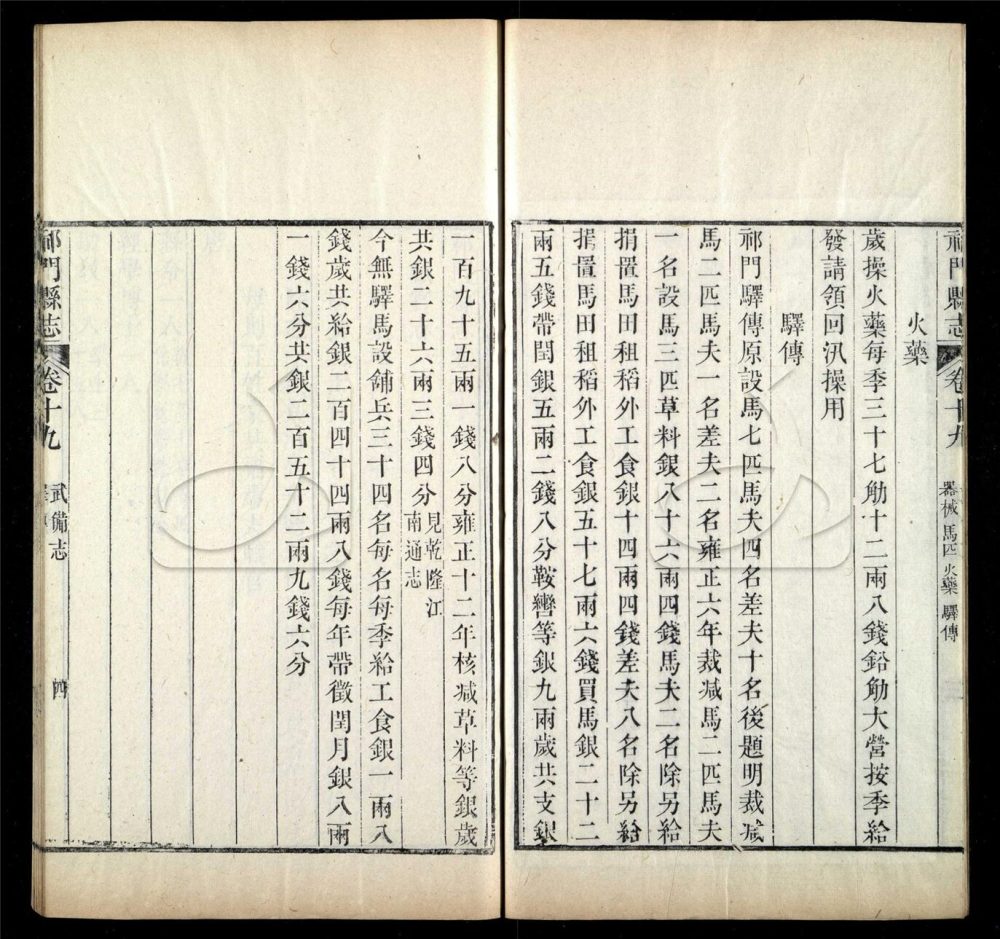 祁門縣志
卷十九
器械 馬匹 火藥 驛傳
火藥
歲操火藥每季三十七觔十二兩八錢鉛觔大營按季給
發請領回汛操用
驛傳
祁門驛傳原設馬七匹馬夫四名差夫十名後題明裁減
馬二匹馬夫一名差夫二名雍正六年裁減馬二匹馬夫
一名設馬三匹草料銀八十六兩四錢馬夫二名除另給
捐置馬田租稻外工食銀十四兩四錢差夫八名除另給
捐置馬田租稻外工食銀五十七兩六錢買馬銀二十二
兩五錢帶閏銀五兩二錢八分鞍轡等銀九兩歲共支銀
一百九十五兩一錢八分雍正十二年核減草料等銀歲
共銀二十六兩三錢四分見乾隆江
南通志
今無驛馬設舖兵三十四名每名每季給工食銀一兩八
錢歲共給銀二百四十四兩八錢每年帶徵閏月銀八兩
一錢六分共銀二百五十二兩九錢六分
祁門縣志
卷十九
武備志
四